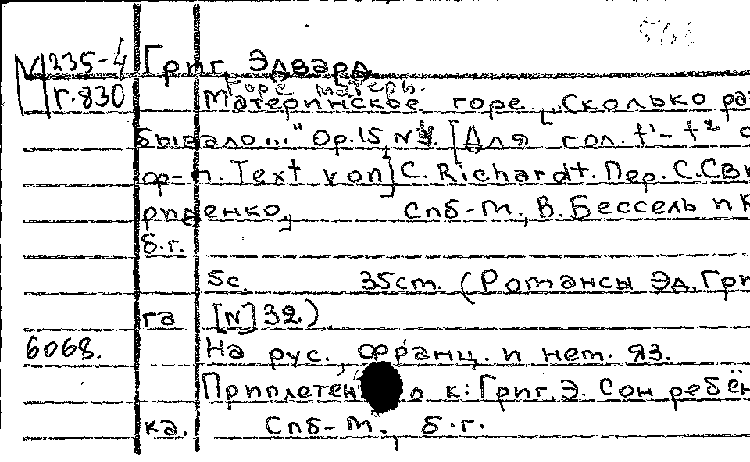 М 235-4 Григ, Эдвард
Г.830 Горе матери.
Материнское горе „Сколько ра
бывало..." Op.15, N4. [Для гол. f'- f²
ф-п. Text von] C. Richardt. Пер. С.Сви
риденко, Спб-М., В. Бессель и К
б.г.
5с. 35cm. (Романсы Эд. Гри
га [N] 32.)
6068. На рус., франц. и нем. яз.
к: Григ, Э. Сон ребён
ка. Спб-М., б.г.